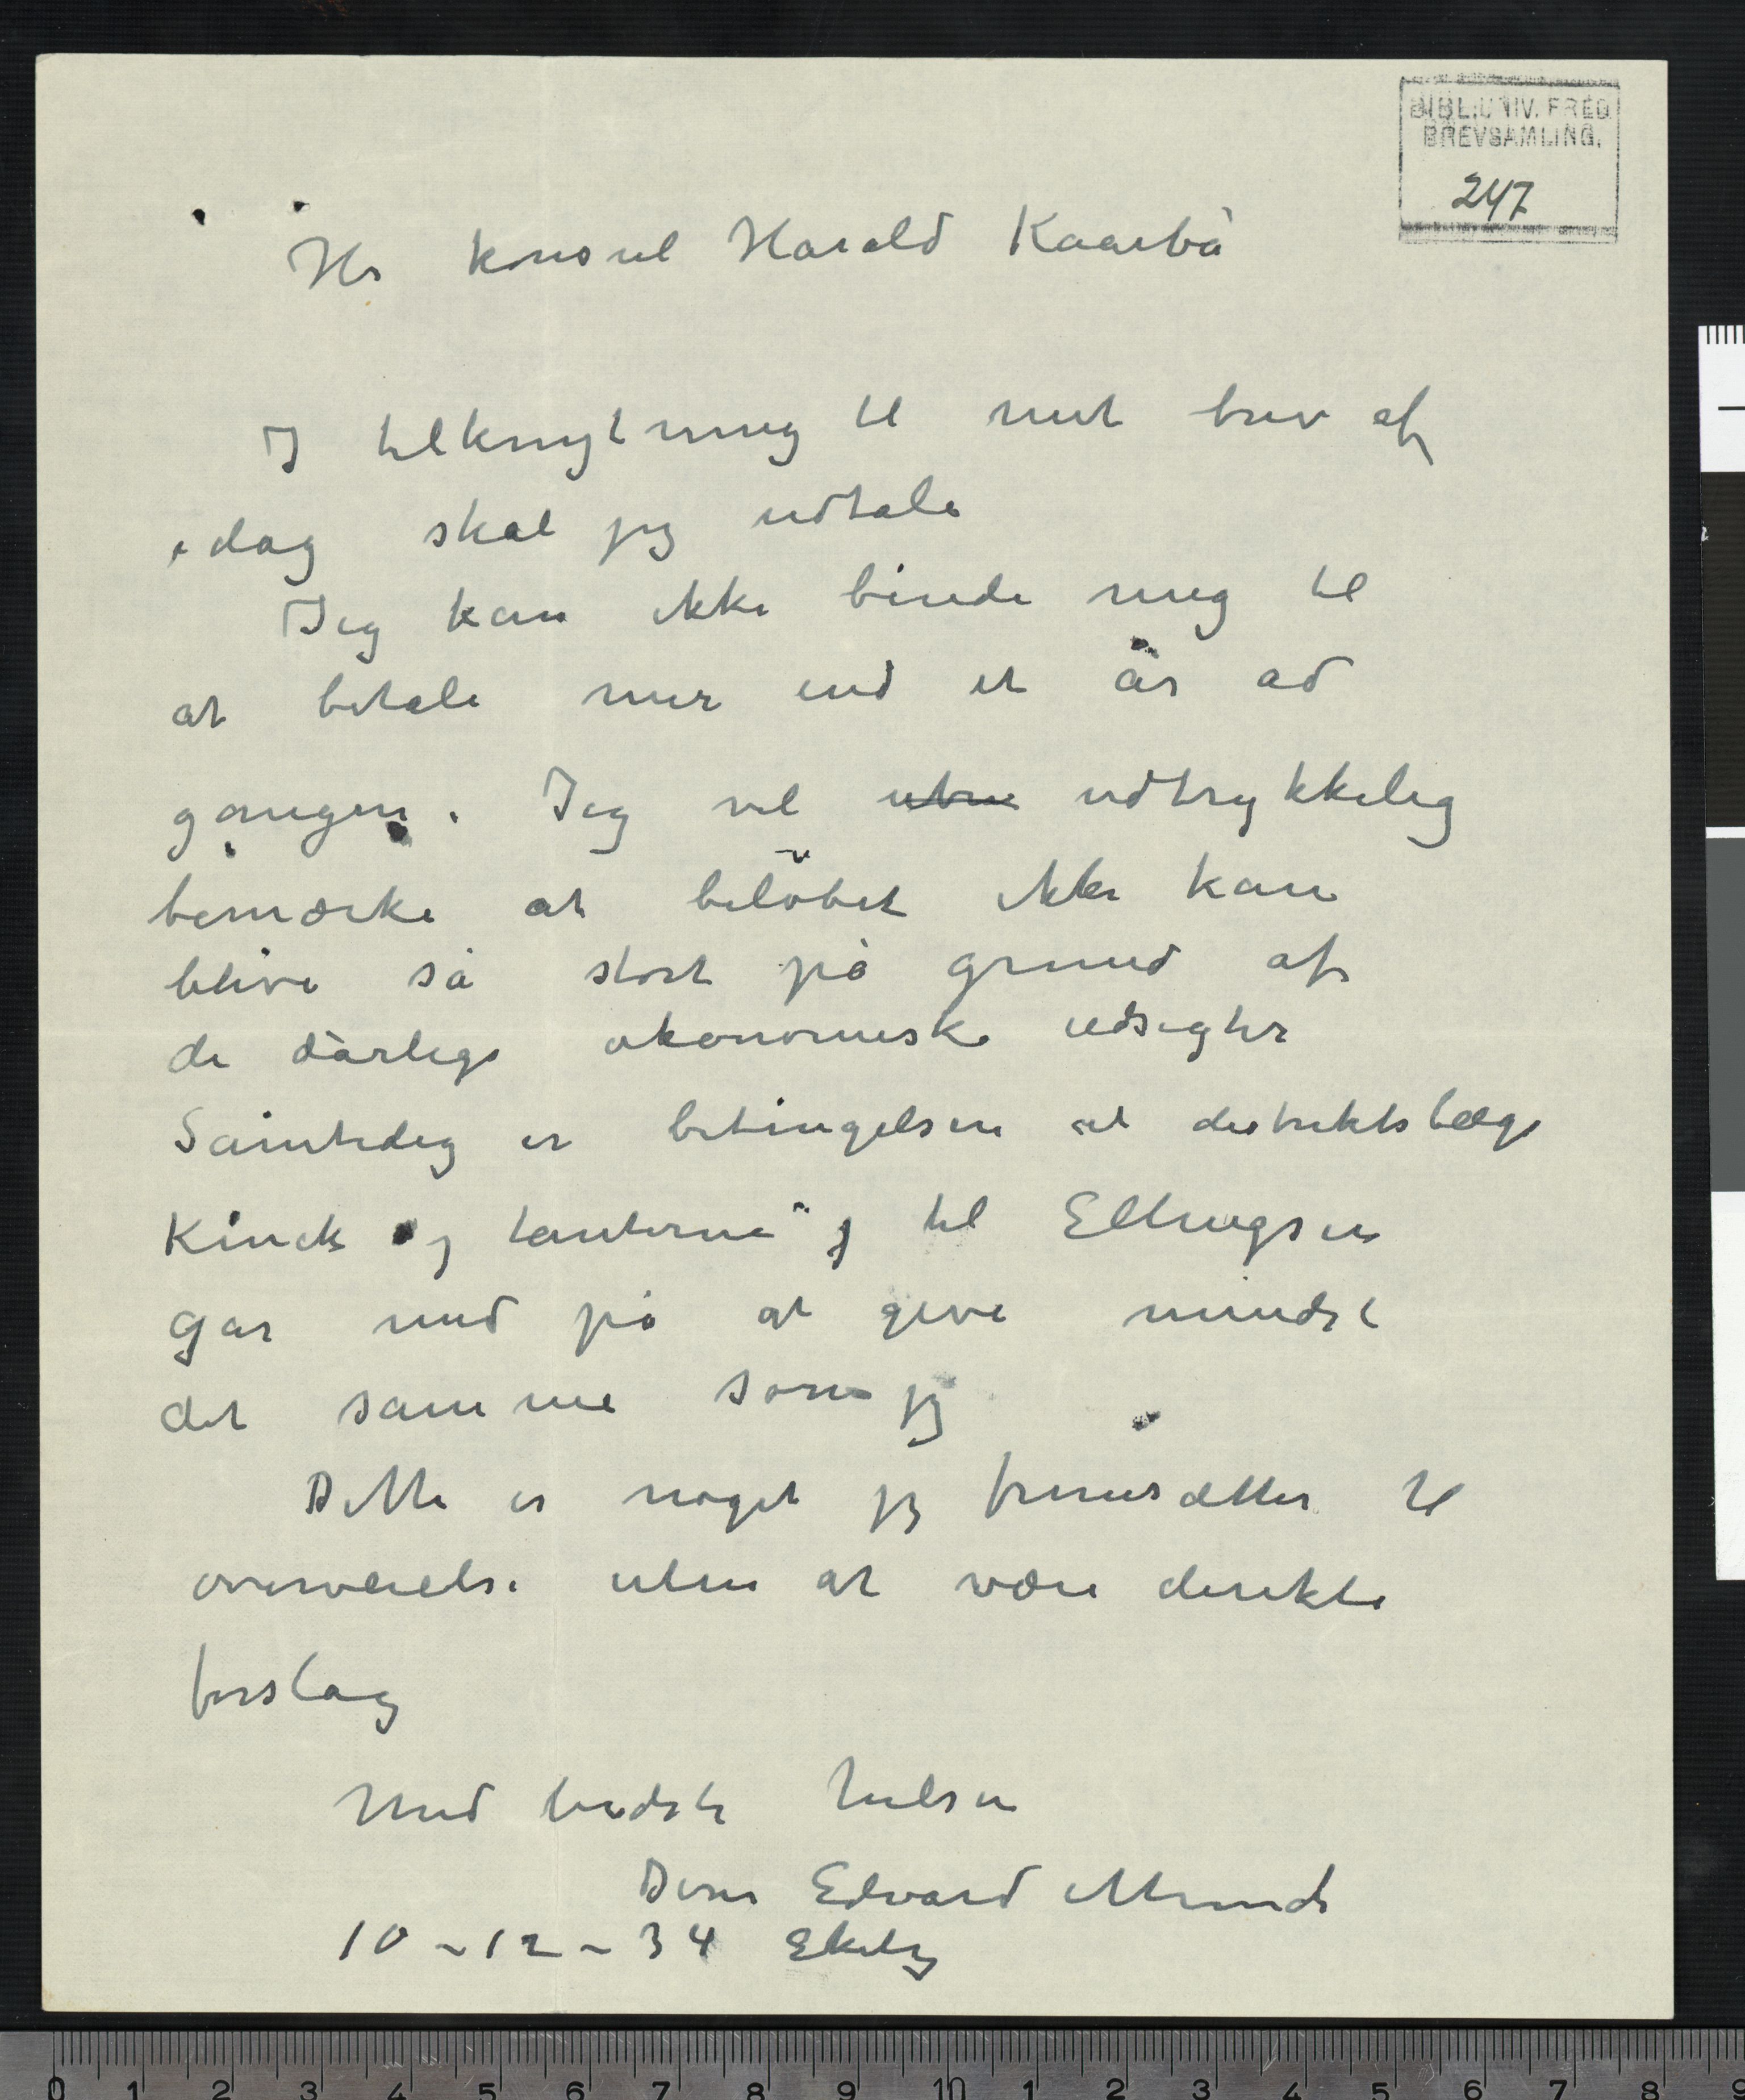 BIBL. UNIV. FRED.
BREVSAMLING.
247
Hr konsul Harald Kaarbø
I tilknytning til mit brev af
idag skal jeg udtale
Jeg kan ikke binde mig til
at betale mer end et år ad
gangen. Jeg vil uten udtrykkelig
bemærke at beløbet ikke kan
blive så stort på grund af
de dårlige økonomiske udsigter
Samtidig er betingelsen at distriktslæge
Kinck og tanterne" til Ellingsen
går med på at give mindst
det samme som jeg
Dette er noget jeg fremsætter til
overveielse uten at være direkte
forslag
Med bedste hilsen
Deres Edvard Munch
10-12-34 Ekely
0 1 2 3 4 5 6 7 8 9 10 1 2 3 4 5 6 7 8 9